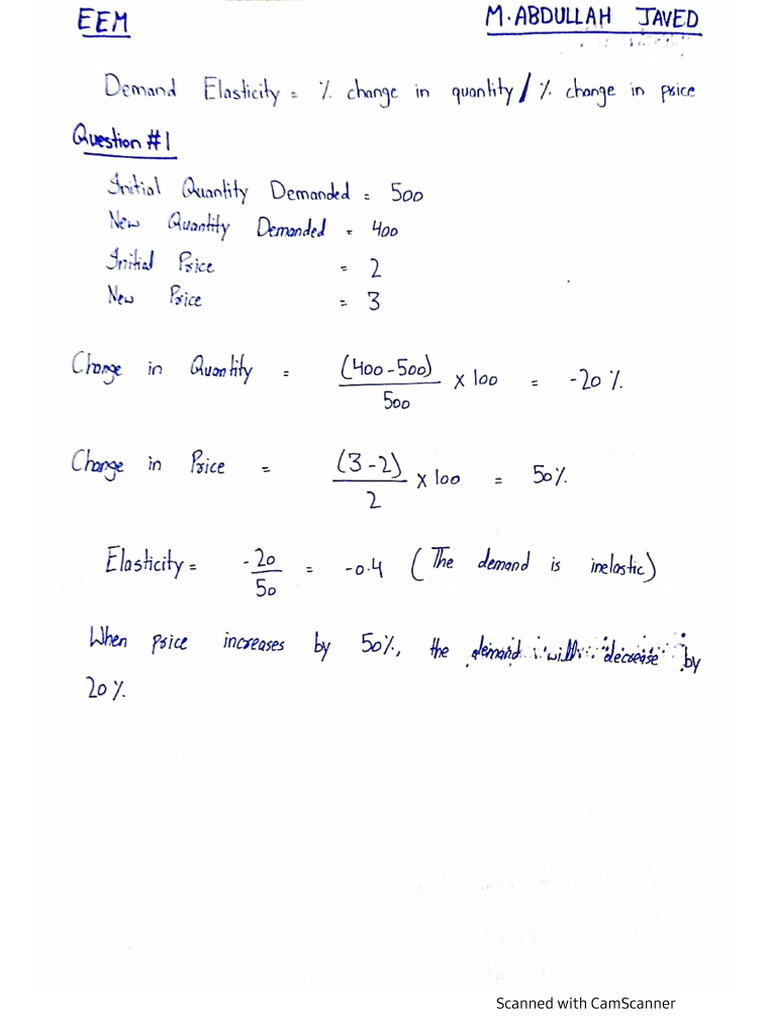 EEM
M.ABDULLAH JAVED
Demand Elasticity = % change in quantity / % change in price
Question #1
Initial Quantity Demanded = 500
New Quantity Demanded = 400
Initial Price = 2
New Price = 3
Change in Quantity = (400-500)/500 x 100 = -20 %.
Change in Price = (3-2)/2 x 100 = 50%.
Elasticity = -20/50 = -0.4 (The demand is inelastic)
When price increases by 50%, the demand will decrease by
20 %.
Scanned with CamScanner